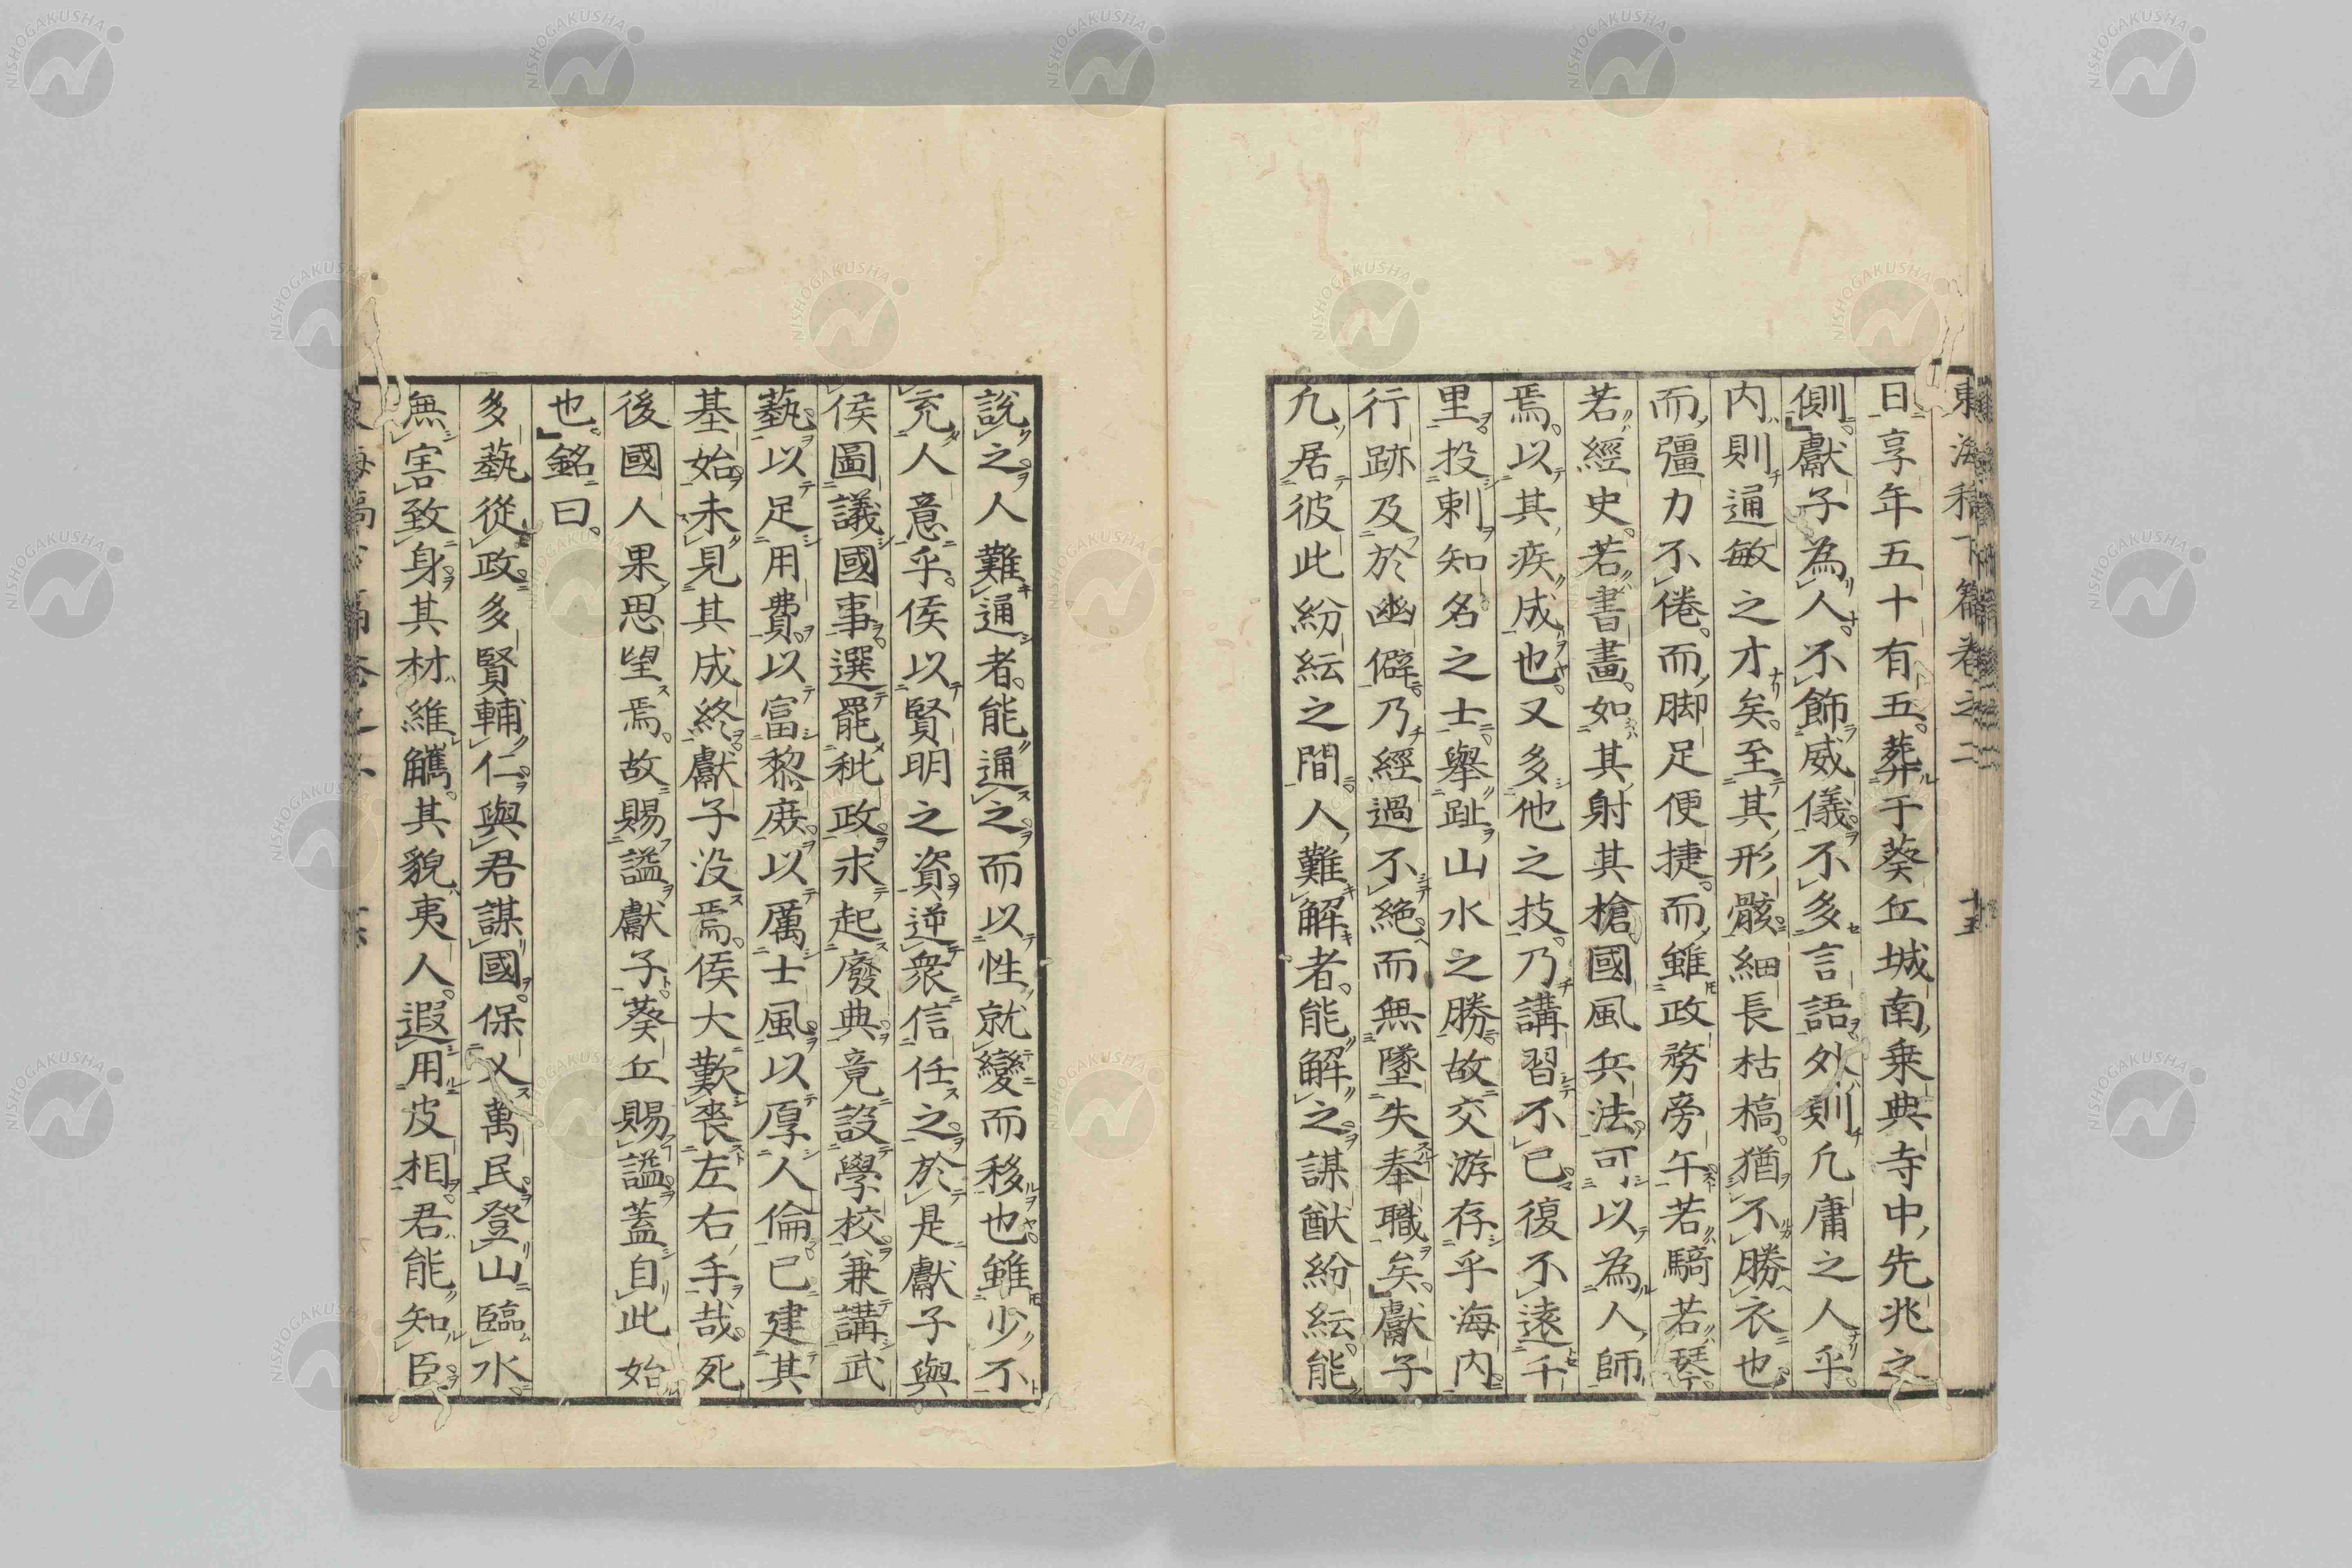 東海稿下篇卷之二 十五
日享年五十有五葬于葵丘城南乗典寺中先兆之
側獻子為人不飾威儀不多言語外則凢庸之人乎
内則通敏之才矣至其形骸細長枯槁猶不勝衣也
而彊力不倦而脚足便捷而雖政務旁午若騎若琴
若經史若書畫如其射其槍國風兵法可以為人師
焉以其疾成也又多他之技乃講習不已復不遠千
里投刺知名之士舉趾山水之勝故交游存乎海内
行跡及於幽僻乃經過不絶而無墜失奉職矣獻子
凢居彼此紛紜之間人難解者能解之謀猷紛紜能
說之人難通者能通之而以性就變而移也雖少不
充人意乎侯以賢明之資逆衆信任之於是獻子與
侯圖議國事選罷秕政求起廢典竟設學校兼講武
藝以足用費以富黎庻以厲士風以厚人倫已建其
基始未見其成終獻子没焉侯大歎喪左右手哉死
後國人果思望焉故賜謚獻子葵丘賜謚蓋自此始
也銘曰
多藝從政多賢輔仁與君謀國保乂萬民登山臨水
無害致身其材維觿其貌夷人遐用皮相君能知臣